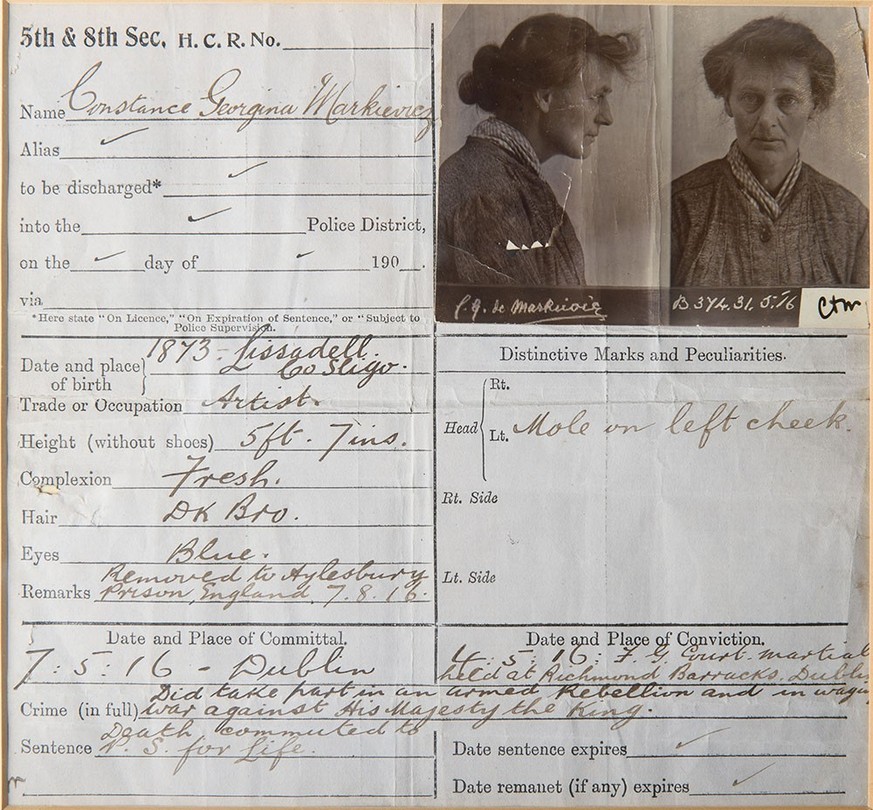 5th & 8th Sec. H. C. R. No.
Name Constance Georgina Markievicz
Alias
to be discharged*
into the Police District,
on the day of 190 .
via
*Here state "On Licence," "On Expiration of Sentence," or "Subject to
Police Supervision.
C. G. de Markievicz B 374. 31. 5. 16 Ctm
Date and place of birth 1873 - Lissadell.
Co Sligo.
Trade or Occupation Artist.
Height (without shoes) 5ft. 7ins.
Complexion Fresh.
Hair DK Bro.
Eyes Blue.
Remarks Removed to Aylesbury
Prison, England, 7. 8. 16.
Distinctive Marks and Peculiarities.
Head Rt.
Lt. Mole on left cheek.
Rt. Side
Lt. Side
Date and Place of Committal.
7 : 5 : 16 - Dublin
Date and Place of Conviction.
4. 5. 16 : F. G. Court. martial
held at Richmond Barracks. Dublin
Crime (in full) Did take part in an armed Rebellion and in
war against His Majesty the King.
Sentence Death, commuted to
P. S. for Life.
Date sentence expires
Date remanet (if any) expires